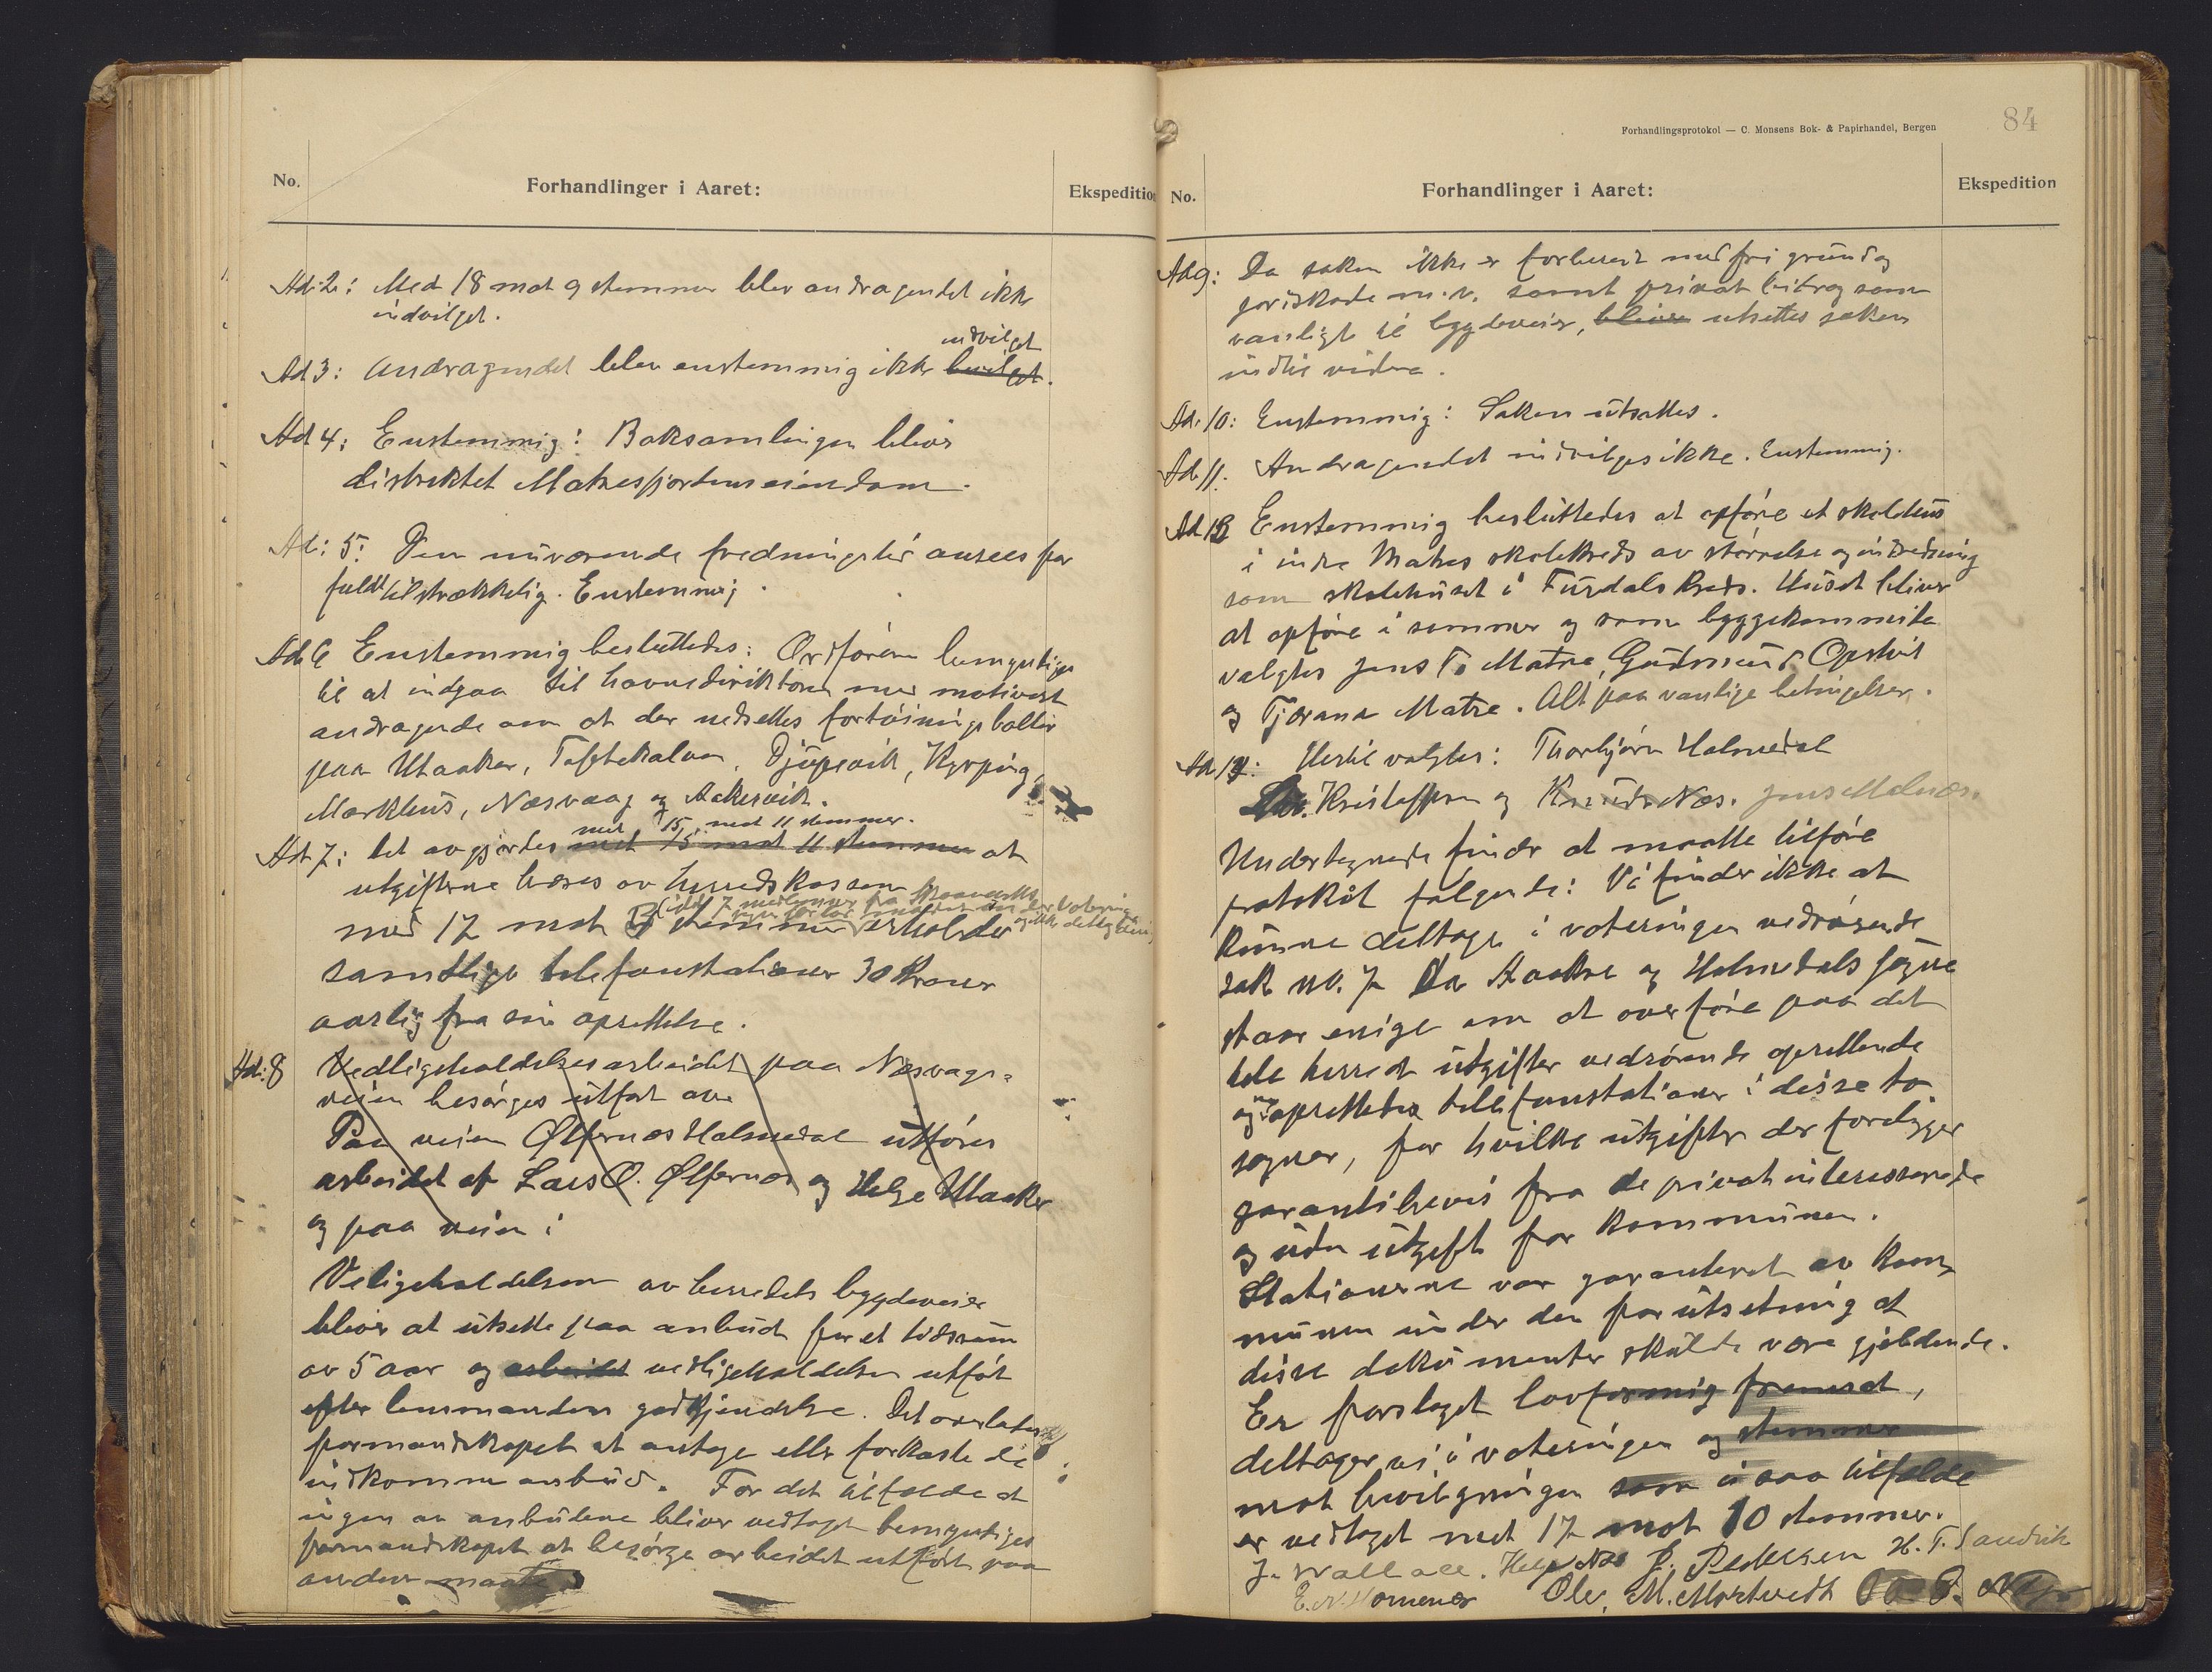 No.
Forhandlinger i Aaret:
Ekspedition
Ad. 2: Med 18 mot 9 stemmer blev andragendet ikke
indvilget.
indvilget
Ad 3: Andragendet blev enstemmig ikke bevilget.
Ad 4: Enstemmig: Boksamlingen blir
distriktet Matrefjordens eiendom.
Ad: 5: Den nuværende fredningstid ansees for
fuldt tilstrækkelig. Enstemmig.
Ad. 6 Enstemmig besluttedes: Ordføren bemyndiges
til at indgaa til havnedirektøren med motivert
andragende om at der nedsettes fortøiningsbolter
paa Utaaker, Toftekalven, Djupevik, Kyrping,
Markhus, Næsvaag og Aakrevik.
med 15 mot 11 stemmer.
Ad 7: Det avgjordes med 15 mot 11 stemmer at
utgifterne bæres av herredskassen
med 17 mot stemmer erholder
samtlige telefonstationer 30 kroner
aarlig fra sin oprettelse.
Ad: 8 Vedligeholdelsesarbeidet paa Næsvaags-
veien besørges utført av
Paa veien Ølfernæs Halmedal utføres
arbeidet af Lars O. Ølfernæs og Helge Utaaker
og paa veien i
Veligeholdelsen av herredets bygdeveier
bliver at utsette paa anbud for et tidsrum
av 5 aar og arbeidet vedligeholdelsen utført
efter lensmandens godkjendelse. Det overlates
formandskapet at antage eller forkaste de
indkomne anbud. For det tilfælde at
ingen av anbudene bliver vedtaget bemyndiges
formandskapet at besørge arbeidet utført paa
anden maate
Forhandlingsprotokol — C. Monsens Bok- & Papirhandel, Bergen
84
No.
Forhandlinger i Aaret:
Ekspedition
Ad 9: Da saken ikke er forberedt med fri grund og
jordskade m.v. samt privat bidrag som
vanligt til bygdeveier, bliver utsettes saken
indtil videre.
Ad. 10: Enstemmig: Saken utsettes.
Ad. 11. Andragendet indvilges ikke. Enstemmig.
Ad 12 Enstemmig besluttedes at opføre et skolehus
i indre Matres skolekreds av størrelse og indredning
som skolehuset i Fusdals kreds. Huset bliver
at opføre i sommer og som byggekommite
valgtes Jens T. Matre, Gudmund Opstvit
og Tjerand Matre. Alt paa vanlige betingelser.
Ad 14: Hertil valgtes: Thorbjørn Halmedal
Kristoffersen og Knud Næs. Jens Malnæs.
Undertegnede finder at maatte tilføre
protokol følgende: Vi finder ikke at
kunne deltage i voteringen vedrørende
sak no. 7 Da Aakre og Halmedals sogne
staar enige om at overføre paa det
hele herred utgifter vedrørende oprettende
og oprettede telefonstationer i disse to
sogner, for hvilke utgifter der foreligger
garantibevis fra de privat interesserede
og uten utgift for kommunen.
Stationerne var garanteret av kom-
munen under den forutsetning at
disse dokumenter skulde være gjeldende.
Er forslaget lovformig fremsat,
deltager vi i voteringen og stemmer
mot bevilgningen som i saa tilfelde
er vedtaget med 17 mot 10 stemmer.
J. Wallace. Helge Næs J. Pedersen H. T. Sandvik
Ole M. Markvedt